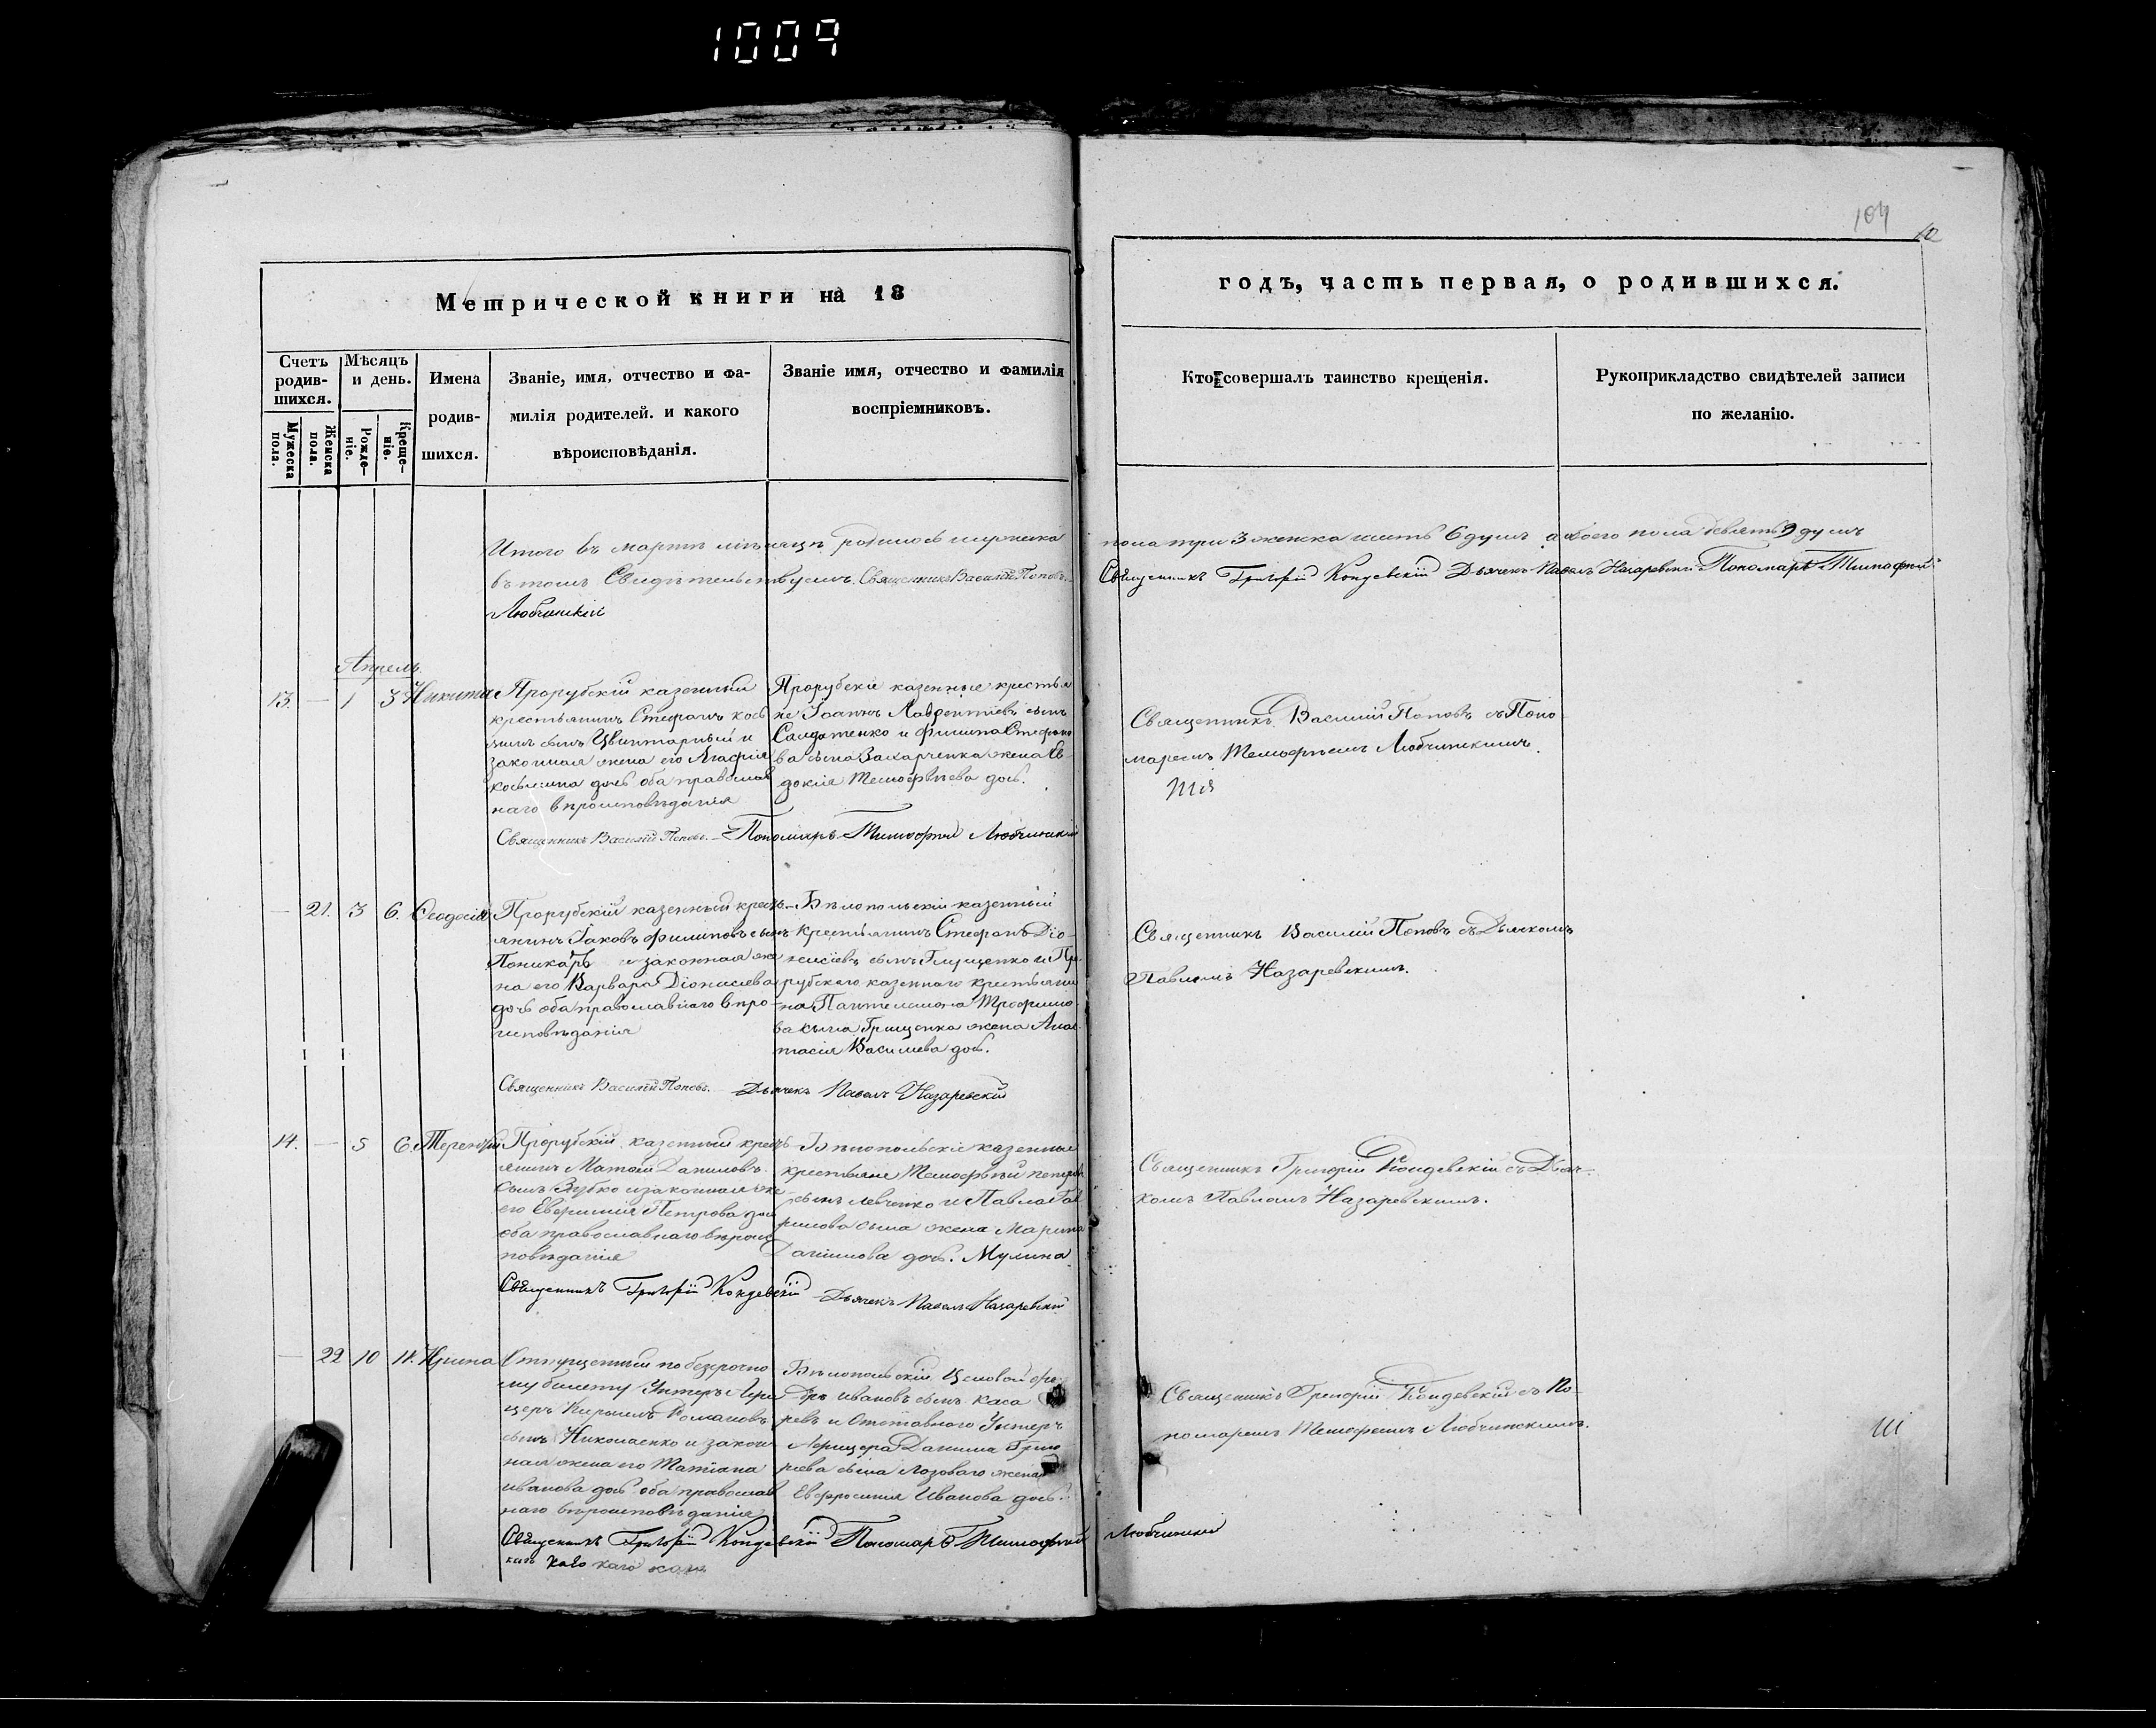 1009
104
10
Метрической книги на 18
годъ, часть первая, о родившихся.
Счетъ родив-шихся.
Мужеска пола.
Женска пола.
Мѣсяцъ и день.
Рожде-ніе.
Креще-ніе.
Имена родив-шихся.
Званіе, имя, отчество и фа-
милія родителей. и какого
вѣроисповѣданія.
Званіе имя, отчество и фамилія
воспріемниковъ.
Кто совершалъ таинство крещенія.
Рукоприкладство свидѣтелей записи
по желанію.
Итого въ мартѣ мѣсяцѣ родилось мужеска
пола три 3 женска шесть 6 душъ а обоего пола девять 9 душъ
въ томъ Свидѣтельствуемъ. Священникъ Василій Поповъ.
Священникъ Григорій Кондевскій Дьячекъ Павелъ Назаревскій Пономарь Тимофей
Любчинскій
Апрель
13. — 1 3 Никита
Прорубскій казенный
крестьянинъ Стефанъ Косъ
минъ сынъ Цвинтарный и
законная жена его Агафія
Космина дочь оба православ
наго вѣроисповѣданія
Прорубскіе казенные крестья
не Іоаннъ Лаврентіевъ сынъ
Солдатенко и Филипа Стефано
ва сына Захарченка жена Ев-
докія Тимофѣева дочь.
Священникъ Василій Поповъ съ Поно
маремъ Тимофѣемъ Любчинскимъ.
Священникъ Василій Поповъ. — Пономарь Тимофей Любчинскій
— 21. 3 6. Феодосія
Прорубскій казенный крест
янинъ Іаковъ Филиповъ сынъ
Поникарь и законная же
на его Варвара Діонисіева
дочь оба православнаго вѣро-
исповѣданія
Бѣлопольскій казенный
крестьянинъ Стефанъ Діо-
нисіевъ сынъ Глущенко и Про
рубского казенного крестьяни
на Пантелеимона Трофимо
ва сына Грищенка жена Анас
тасія Василіева дочь.
Священникъ Василій Поповъ съ Дьячкомъ
Павломъ Назаревскимъ.
Священникъ Василій Поповъ. Дьячекъ Павелъ Назаревскій
14. — 5 6. Терентій
Прорубскій казенный крест
янинъ Матѳій Даниловъ
сынъ Зубко и законная же
его Евфимія Петрова дочь
оба православнаго вѣроис
повѣданія
Бѣлопольскіе казенные
крестьяне Тимофѣй Петровъ
сынъ Левченко и Павла Гав
рилова сына жена Марина
Данилова дочь. Мулина
Священникъ Григорій Кондевскій съ Дьяч-
комъ Павломъ Назаревскимъ.
Священникъ Григорій Кондевскій Дьячекъ Павелъ Назаревскій
— 22 10 11. Ирина
Отпущенный по безсрочно
му билету Унтеръ Афи
церъ Кирилъ Романовъ
сынъ Николаенко и закон
ная жена его Татіана
Иванова дочь оба православ
наго вѣроисповѣданія
Бѣлопольскій Цеховой Фе-
доръ Ивановъ сынъ Каса
ревъ и Отставного Унтеръ
Афицера Данила Григо
рьева сына Лозового жена
Евфросинія Иванова дочь.
Священникъ Григорій Кондевскій съ По-
номаремъ Тимофеемъ Любчинскимъ.
Священникъ Григорій Кондевскій Пономарь Тимофей Любчинскій
каго каго